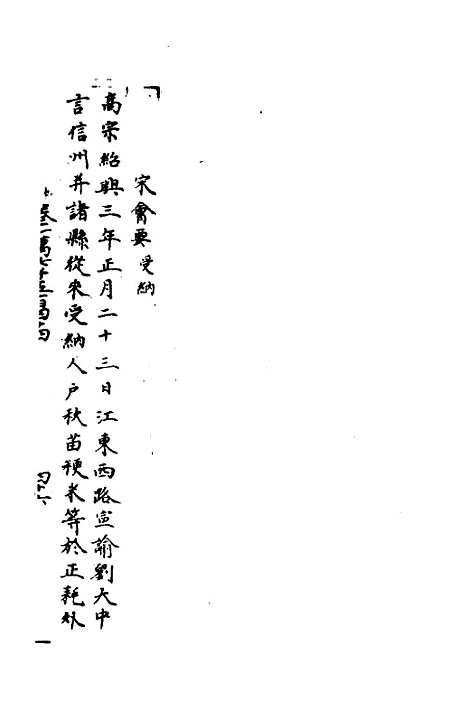 宋會要 受納
高宗紹興三年正月二十三日江東西路宣諭劉大中
言信州并諸縣從來受納人户秋苗粳米等於正耗外
一